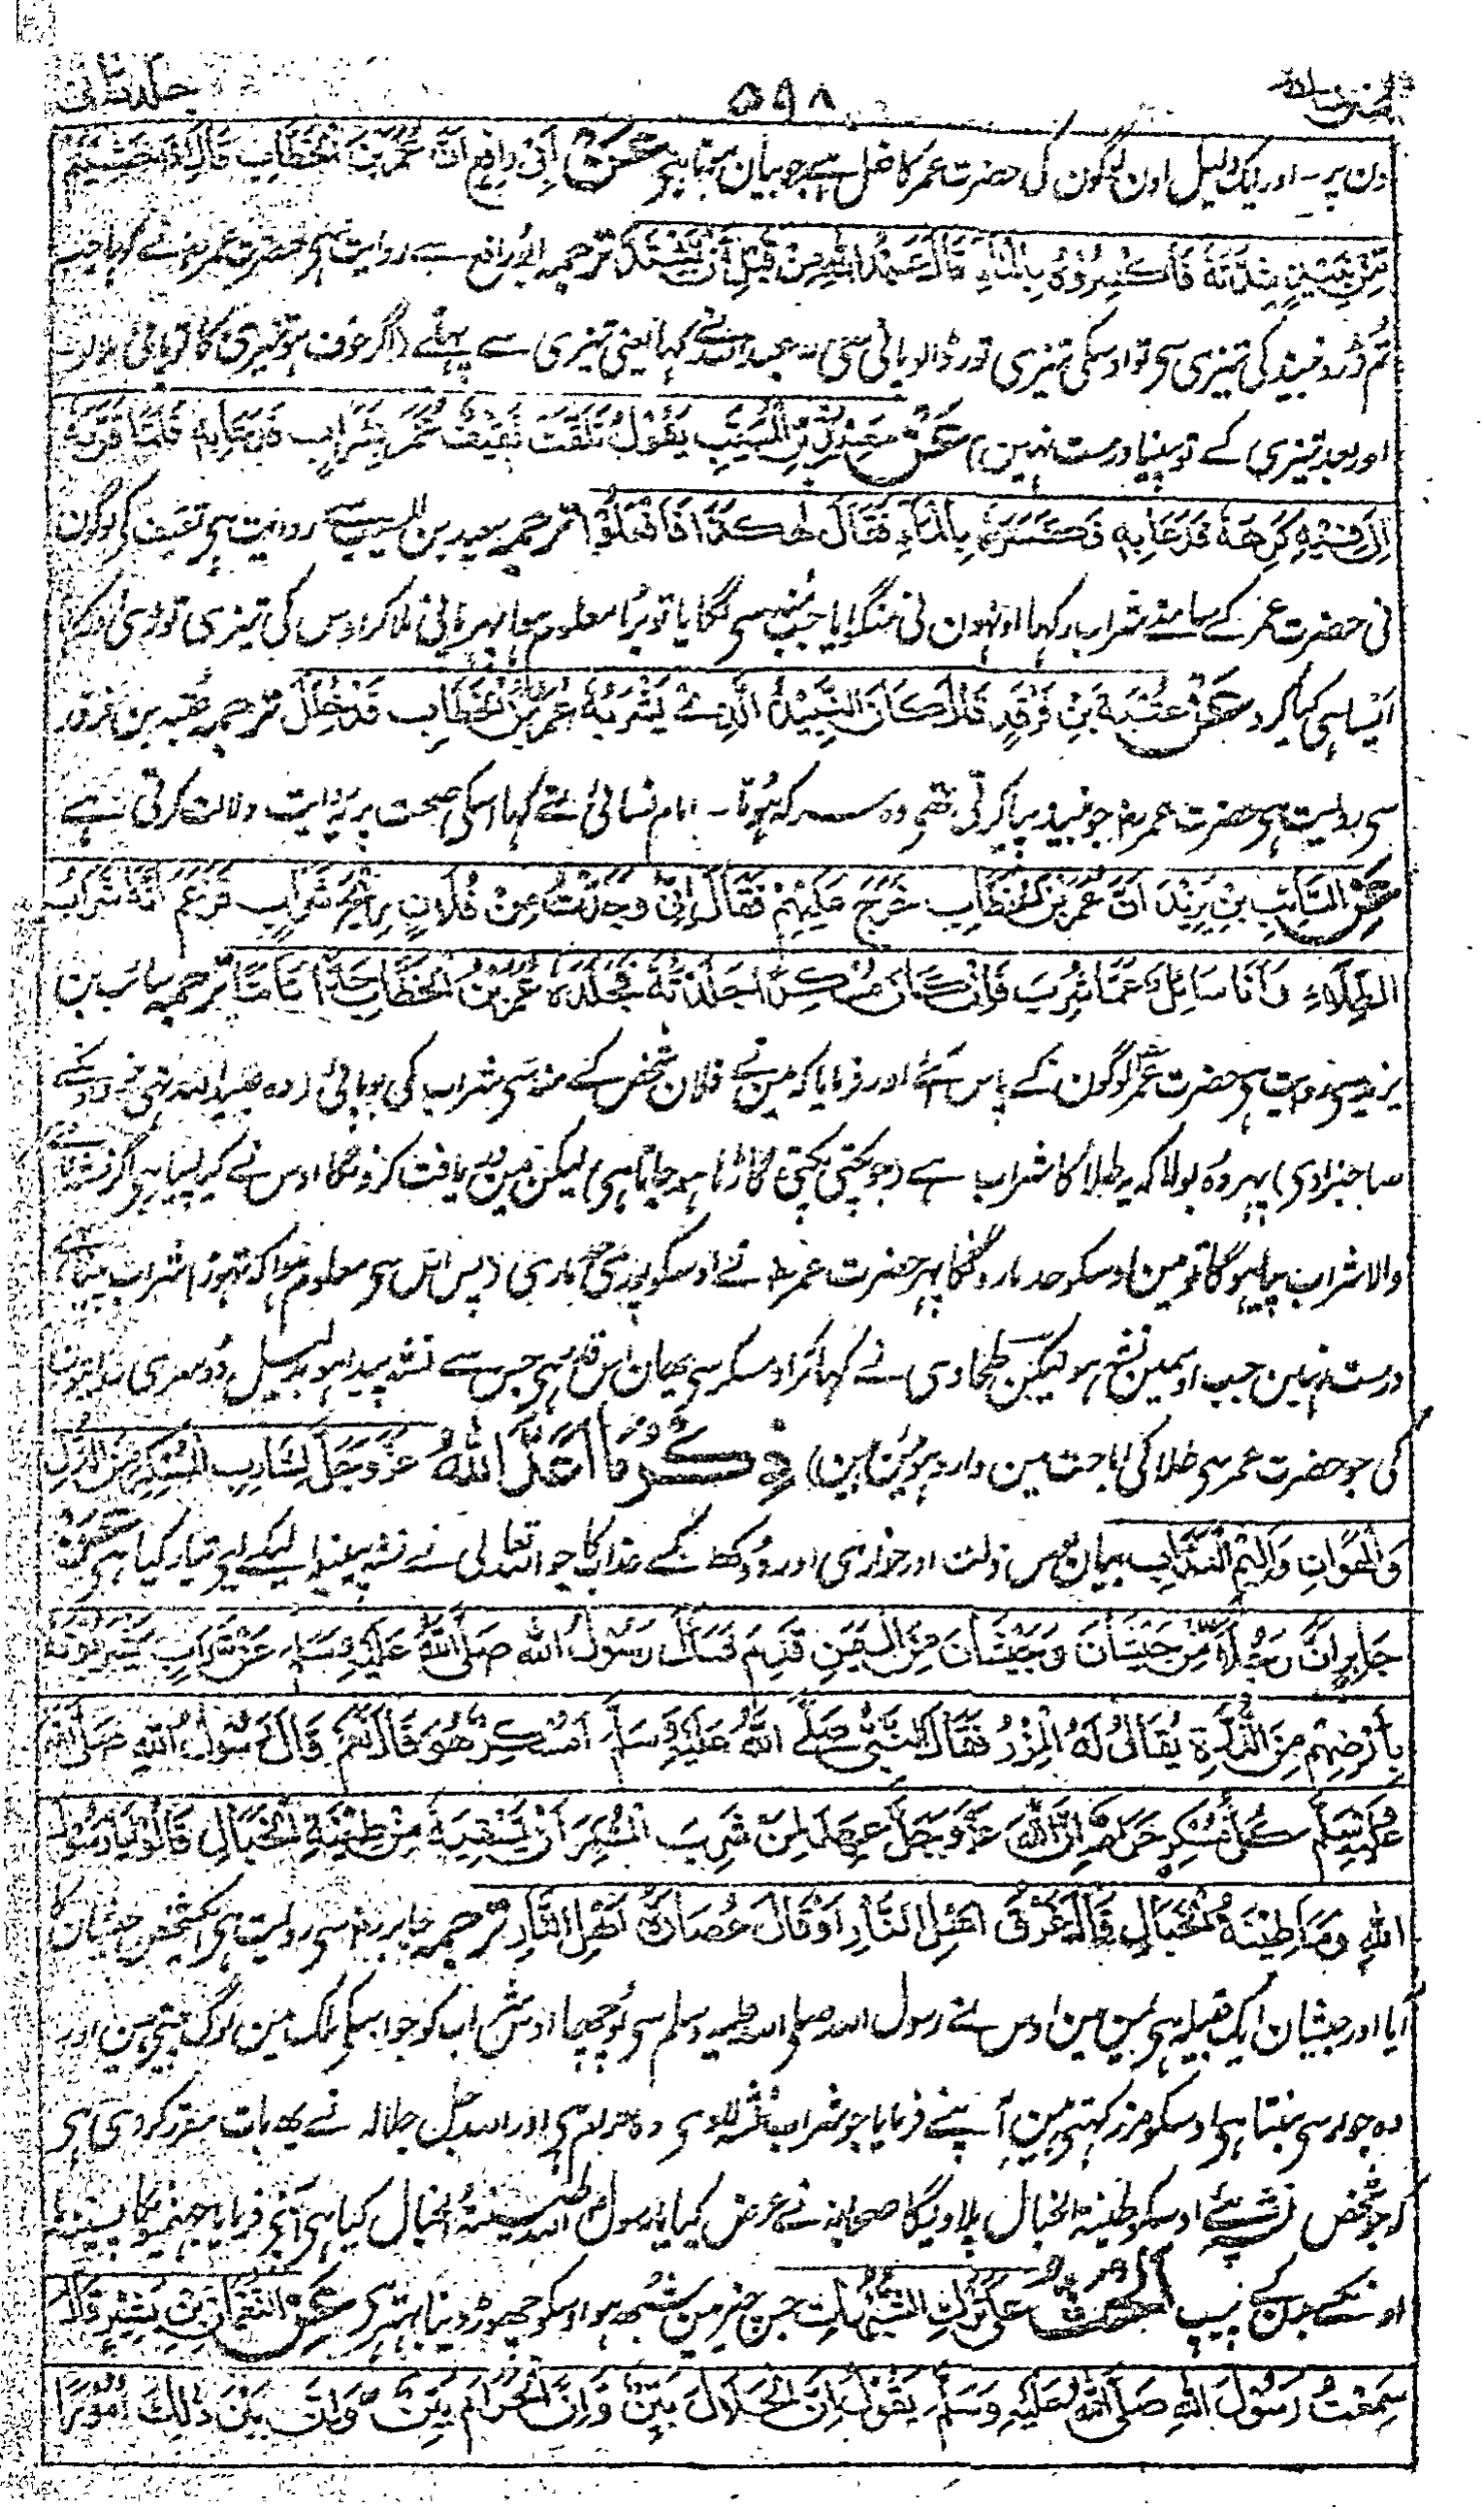 جلد ثانی ۵۹۸
اون پر۔ اور ایک دلیل اون لوگون کی حضرت عمر کا فعل ہے جو بیان ہوتا ہی عَنْ أَبِیْ رَافِعٍ أَنَّ عُمَرَ بْنَ الْخَطَّابِ قَالَ إِذَا خَشِیْتُمْ
مِنْ نَبِیْذٍ شِدَّتَهٗ فَاکْسِرُوْهُ بِالْمَاءِ قَالَ عَبْدُ اللهِ مِنْ قَبْلِ أَنْ یَّشْتَدَّ ترجمہ ابو رافع سے روایت ہی حضرت عمر رضہ نے کہا جب
تم ڈرو نبیذ کی تیزی سی تو اوسکی تیزی توڑ ڈالو پانی سی۔ عبداللہ نے کہا یعنی تیزی سے پہلے (اگر خوف ہو تیزی کا تو پانی ملاؤ
اور بعد تیزی کے تو پینا درست نہین) عَنْ سَعِیْدِ بْنِ الْمُسَیِّبِ یَقُوْلُ تَلَقَّتْ ثَقِیْفٌ عُمَرَ بِشَرَابٍ فَدَعَا بِهٖ فَلَمَّا قَرَّبَهٗ
إِلٰی فِیْهِ کَرِهَهٗ فَدَعَا بِهٖ فَکَسَرَهٗ بِالْمَاءِ فَقَالَ هٰکَذَا فَافْعَلُوْا ترجمہ سعید بن المسیب سے روایت ہی ثقیف کی لوگون
نی حضرت عمر کے سامنے شراب رکہا اونہون نی منگوایا جب منہ سی لگایا تو برا معلوم ہوا پہر پانی ملا کر اوس کی تیزی توڑی اور کہا
ایسا ہی کیا کرو عَنْ عُتْبَةَ بْنِ فَرْقَدٍ قَالَ کَانَ النَّبِیْذُ الَّذِیْ یَشْرَبُهٗ عُمَرُ بْنُ الْخَطَّابِ قَدْ خُلِّلَ ترجمہ عتبہ بن فرقد
سی روایت ہی حضرت عمر رضہ جو نبیذ پیا کرتی تہی وہ سرکہ ہوتا۔ امام نسائی نے کہا اسکی صحت پر یہ روایت دلالت کرتی ہے
عَنِ السَّائِبِ بْنِ یَزِیْدَ أَنَّ عُمَرَ بْنَ الْخَطَّابِ خَرَجَ عَلَیْهِمْ فَقَالَ إِنِّیْ وَجَدْتُ مِنْ فُلَانٍ رِیْحَ شَرَابٍ فَزَعَمَ أَنَّهٗ شَرَابُ
الطِّلَاءِ وَأَنَا سَائِلٌ عَمَّا شَرِبَ فَإِنْ کَانَ مُسْکِرًا جَلَدْتُهٗ فَجَلَدَهٗ عُمَرُ بْنُ الْخَطَّابِ الْحَدَّ تَامًّا ترجمہ سائب بن
یزید سی روایت ہی حضرت عمر لوگون کے پاس آئے اور فرمایا کہ مین نے فلان شخص کے منہ سی شراب کی بو پائی (وہ عبیداللہ تہی عمر کے
صاحبزادی) پہر وہ بولا کہ یہ طلا کا شراب ہے (جو پکتی پکتی گاڑہا ہو جاتا ہی) لیکن مین دریافت کرونگا اوس نے کیا پیا ہی اگر نشہ لانے
والا شراب پیا ہوگا تو مین اوسکو حد مارونگا پہر حضرت عمر رضہ نے اوسکو پوری حد ماری (پس اس سی معلوم ہوا کہ تہوڑا شراب پینا بہی
درست نہین جب اوسمین نشہ ہو لیکن طحاوی نے کہا کہ مراد سکر سی یہان اس قدر ہی جس سے نشہ پیدا ہو بدلیل دوسری روایتون
کی جو حضرت عمر سی طلا کی اباحت مین وارد ہوئین ہین) ذِکْرُ مَا أَعَدَّ اللهُ عَزَّ وَجَلَّ لِشَارِبِ الْمُسْکِرِ مِنَ الذُّلِّ
وَالْهَوَانِ وَأَلِیْمِ الْعَذَابِ بیان اس ذلت اور خواری اور دوکھ کے عذاب کا جو اللہ تعالی نے نشہ پینے والیکے لیے تیار کیا ہی عَنْ
جَابِرٍ أَنَّ رَجُلًا مِّنْ جَیْشَانَ وَجَیْشَانُ مِنَ الْیَمَنِ قَدِمَ فَسَأَلَ رَسُوْلَ اللهِ صَلَّی اللهُ عَلَیْهِ وَسَلَّمَ عَنْ شَرَابٍ یَّشْرَبُوْنَهٗ
بِأَرْضِهِمْ مِنَ الذُّرَةِ یُقَالُ لَهُ الْمِزْرُ فَقَالَ النَّبِیُّ صَلَّی اللهُ عَلَیْهِ وَسَلَّمَ أَمُسْکِرٌ هُوَ قَالَ نَعَمْ قَالَ رَسُوْلُ اللهِ صَلَّی اللهُ
عَلَیْهِ وَسَلَّمَ کُلُّ مُسْکِرٍ حَرَامٌ إِنَّ اللهَ عَزَّ وَجَلَّ عَهِدَ لِمَنْ شَرِبَ الْمُسْکِرَ أَنْ یَّسْقِیَهٗ مِنْ طِیْنَةِ الْخَبَالِ قَالُوْا یَا رَسُوْلَ
اللهِ وَمَا طِیْنَةُ الْخَبَالِ قَالَ عَرَقُ أَهْلِ النَّارِ أَوْ قَالَ عُصَارَةُ أَهْلِ النَّارِ ترجمہ جابر رضہ سی روایت ہی ایک شخص جیشان کا
آیا اور جیشان ایک قبیلہ ہی یمن مین اوس نے رسول اللہ صلی اللہ علیہ وسلم سی پوچہا اوس شراب کو جو اسکی ملک مین لوگ پیتی ہین اور
وہ جوار سی بنتا ہی اوسکو مزر کہتی ہین آپ نے فرمایا جو شراب نشہ لاوی وہ حرام ہی اور اللہ جل جلالہ نے یہ بات مقرر کر دی ہی
کہ جو شخص نشہ پیئے اوسکو طینۃ الخبال پلاویگا صحابہ نے عرض کیا یا رسول اللہ طینۃ الخبال کیا ہی آپ نے فرمایا جہنمیونکا پسینہ یا
اونکے بدن کے پیپ اَلْحَثُّ عَلٰی تَرْكِ الشُّبُهَاتِ جس چیز مین شبہہ ہو اوسکو چھوڑ دینا بہتر ہی عَنِ النُّعْمَانِ بْنِ بَشِیْرٍ قَالَ
سَمِعْتُ رَسُوْلَ اللهِ صَلَّی اللهُ عَلَیْهِ وَسَلَّمَ یَقُوْلُ إِنَّ الْحَلَالَ بَیِّنٌ وَإِنَّ الْحَرَامَ بَیِّنٌ وَإِنَّ بَیْنَ ذٰلِكَ أُمُوْرًا